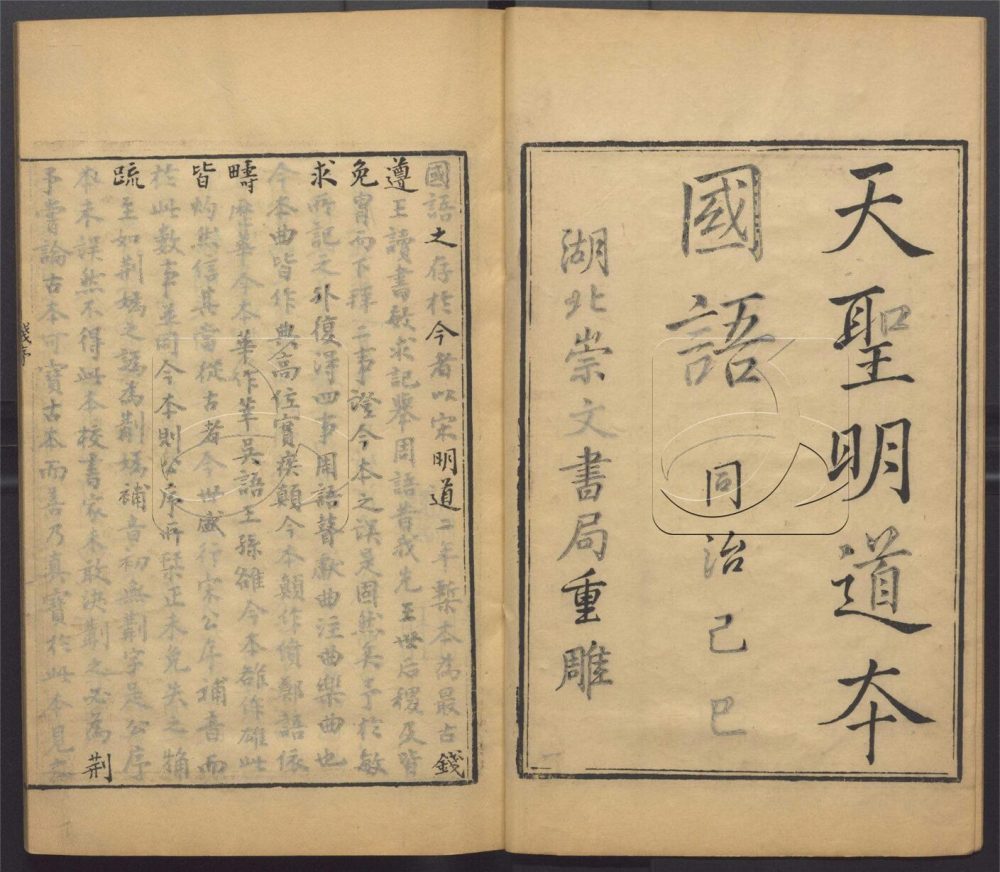 天聖明道本
國語
同治己巳
湖北崇文書局重雕
國語之存於今者以宋明道二年槧本為最古錢
遵王讀書敏求記舉周語昔我先王世后稷及皆
免冑而下拜二事證今本之誤是固然矣予於敏
求所記之外復得四事周語瞽獻曲注曲樂曲也
今本曲皆作典高位寔疾顛今本顛作僨鄭語依
疇歷華今本華作莘吳語王孫雒今本雒作雄此
皆灼然信其當從古者今世盛行宋公序補音而
於此數事並同今本則公序所栞正未免失之觕
疏至如荆媯之譌為㓝媯補音初無㓝字是公序
本未誤然不得此本校書家未敢決㓝之必為荆
予嘗論古本可寶古本而善乃真寶於此本見之
錢序